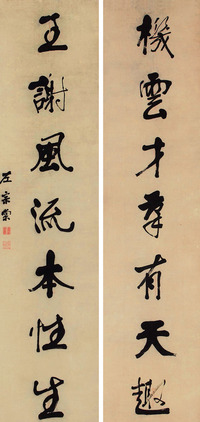 機雲才群有天趣
王謝風流本性生
左宗棠